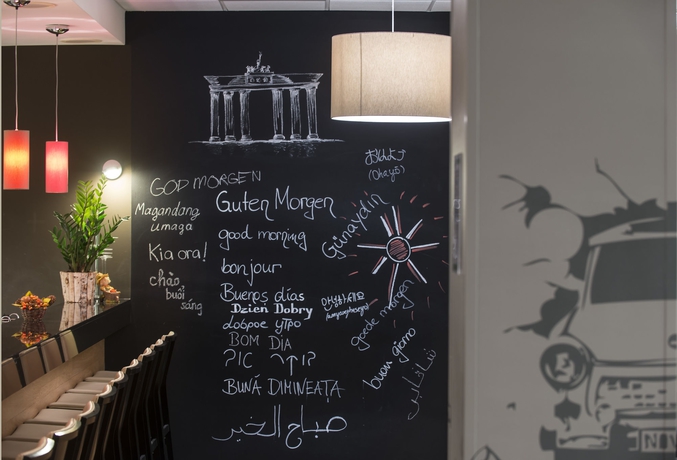 GOD MORGEN
Magandang
umaga
Kia ora!
chào
buổi
sáng
Guten Morgen
good morning
bonjour
Buenos días
Dzień Dobry
доброе утро
BOM DIA
BUNĂ DIMINEAȚA
صباح الخير
(Ohayō)
Günaydın
goede morgen
buon giorno